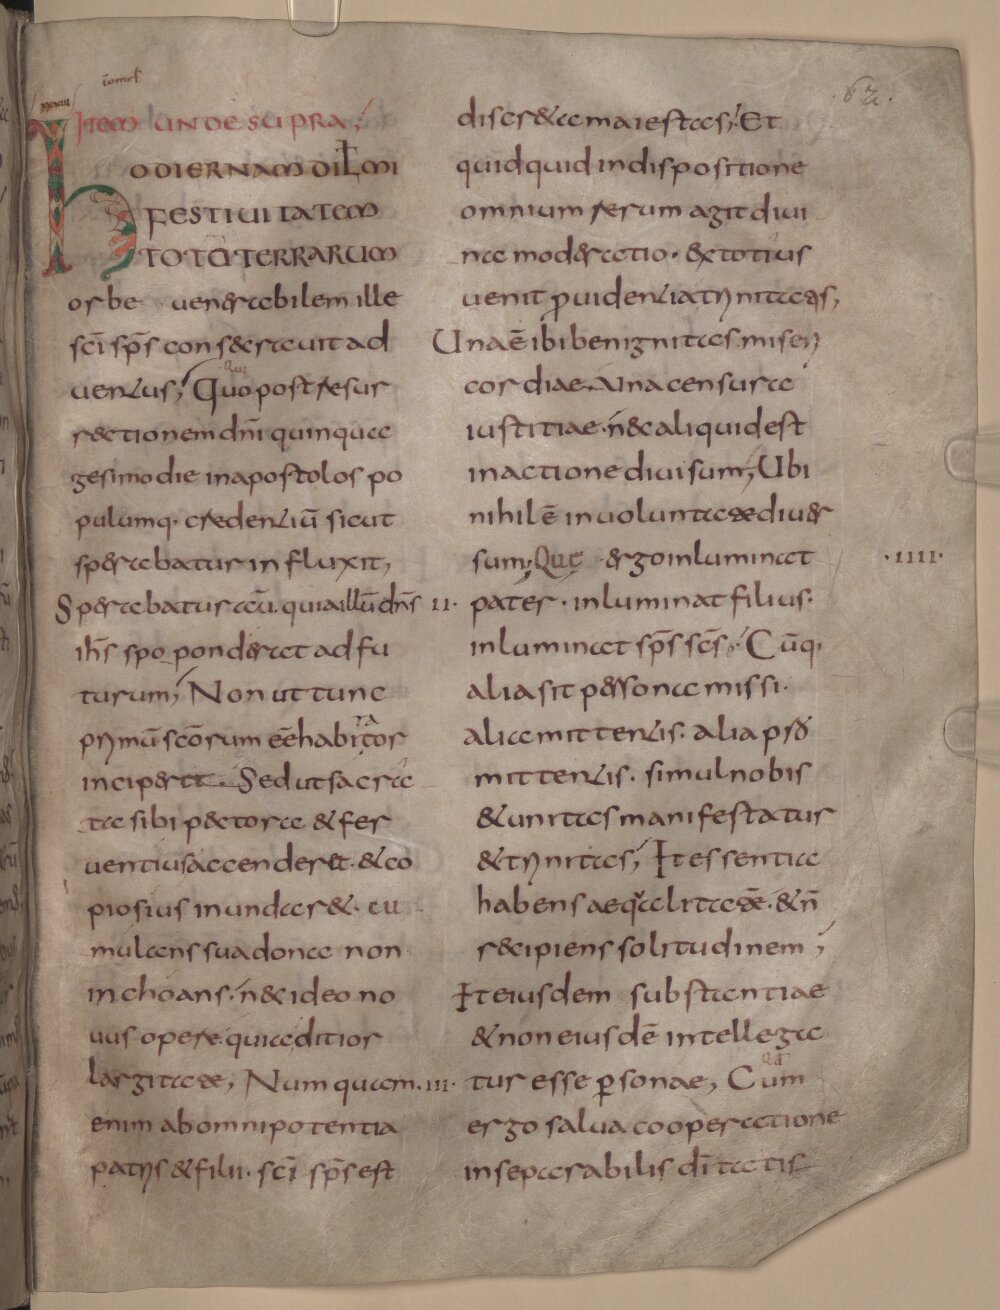 62.
ITEM UNDE SUPRA;
HODIERNAM DIL̅MI
FESTIVITATEM
TOTO TERRARUM
orbe venerabilem ille
sc̅i sp̅s consecravit ad
ventus; Quo post resur
rectionem dn̅i quinqua
gesimo die in apostolos po
pulumq· credentiu̅ sicut
sperabatur influxit,
Sperabatur au̅. quia illu̅ dn̅s
ih̅s spoponderat adfu
turum; Non ut tunc
primu̅ sc̅orum ee̅ habitator
inciperet. Sed ut sacra
ta sibi pectora & fer
ventius accenderet. & co
piosius inundaret. cu
mulans sua dona non
inchoans. n̅ec ideo no
vus opere. quia ditior
largitate, Numquam
enim ab omnipotentia
patris & filii. sc̅i sp̅s est
discreta maiestas; Et
quidquid in dispositione
omnium rerum agit divi
na moderatio. ex totius
venit providentia trinitatis;
Una e̅ ibi benignitas miseri
cordiae. Una censura
iustitiae. n̅ec aliquid est
in actione divisum; Ubi
nihil e̅ in voluntate diver
sum; Que ergo inluminat
·IIII·
pater. inluminat filius.
inluminat sp̅s sc̅s. Cu̅q·
alia sit persona missi.
alia mittentis. alia pro
mittentis. simul nobis
& unitas manifestatur
& trinitas; It essentia
habens aequalitate̅. & n̅
recipiens solitudinem;
It eiusdem substantiae
& non eiusde̅ intellega
III· tur esse personae, Cum
ergo salva cooperatione
inseparabilis di̅tatis